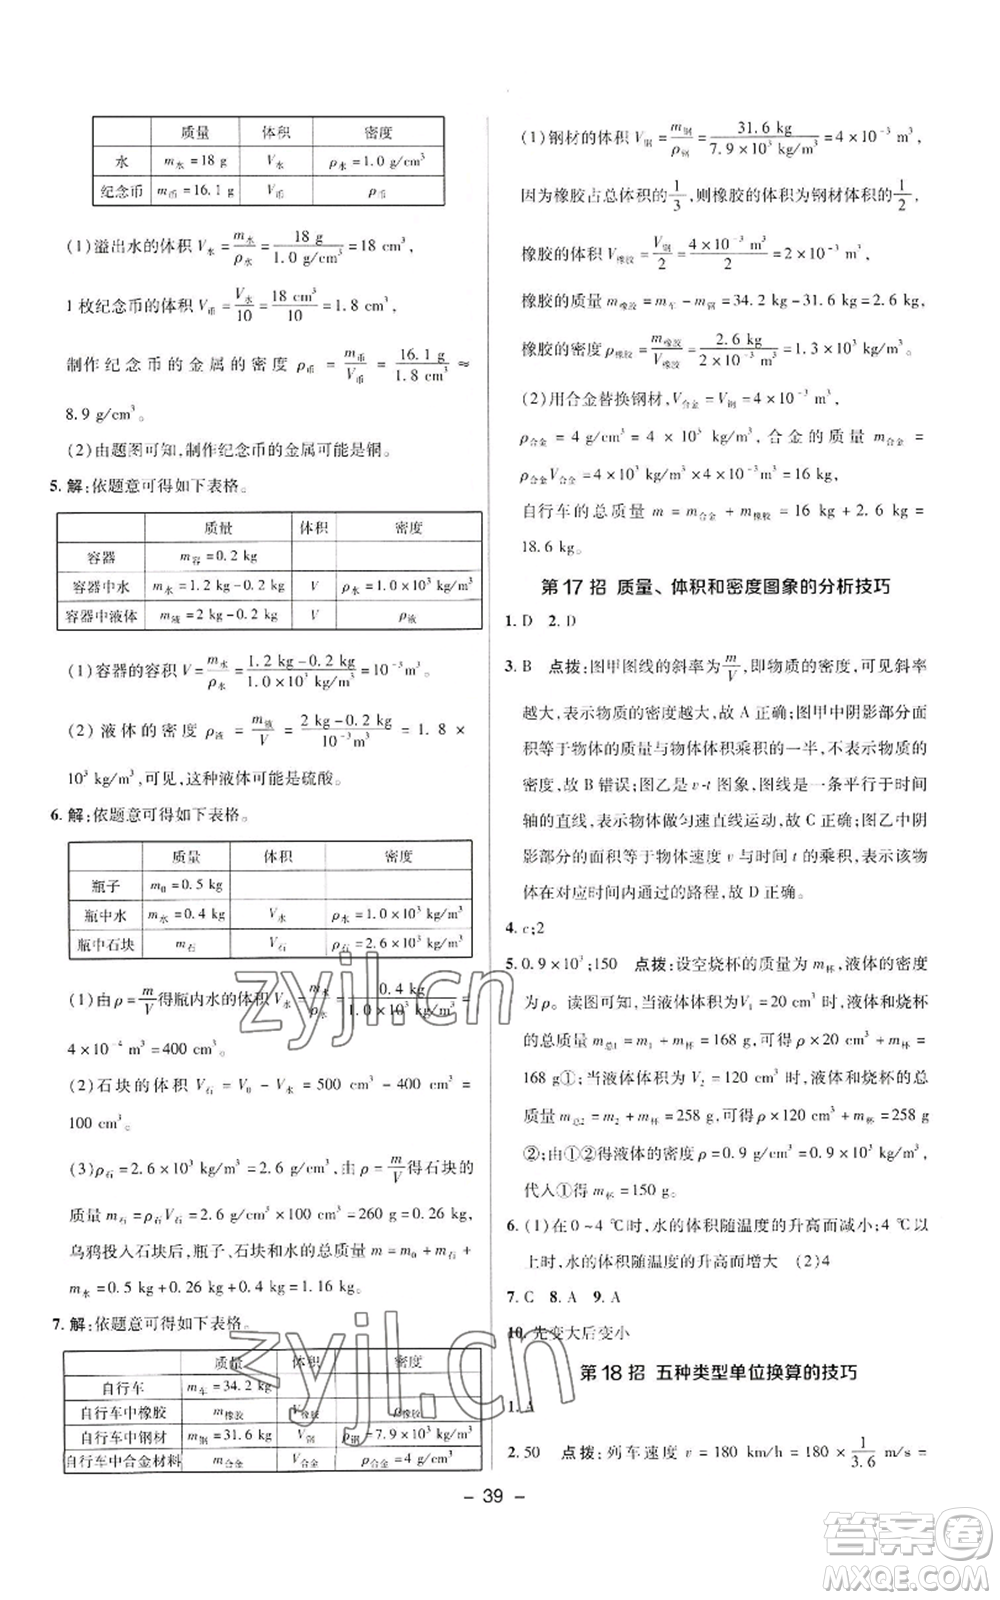 质量 体积 密度
水 m水=18 g V水 ρ水=1.0 g/cm³
纪念币 m币=16.1 g V币 ρ币
(1)溢出水的体积 V水=m水/ρ水=18 g/1.0 g/cm³=18 cm³,
1枚纪念币的体积 V币=V水/10=18 cm³/10=1.8 cm³,
制作纪念币的金属的密度 ρ币=m币/V币=16.1 g/1.8 cm³≈
8.9 g/cm³。
(2)由题图可知,制作纪念币的金属可能是铜。
5. 解:依题意可得如下表格。
质量 体积 密度
容器 m容=0.2 kg
容器中水 m水=1.2 kg-0.2 kg V ρ水=1.0×10³ kg/m³
容器中液体 m液=2 kg-0.2 kg V ρ液
(1)容器的容积 V=m水/ρ水=1.2 kg-0.2 kg/1.0×10³ kg/m³=10⁻³ m³;
(2)液体的密度 ρ液=m液/V=2 kg-0.2 kg/10⁻³m³=1.8×
10³ kg/m³,可见,这种液体可能是硫酸。
6. 解:依题意可得如下表格。
质量 体积 密度
瓶子 m₀=0.5 kg
瓶中水 m水=0.4 kg V水 ρ水=1.0×10³ kg/m³
瓶中石块 m石 V石 ρ石=2.6×10³ kg/m³
(1)由 ρ=m/V得瓶内水的体积 V水=m水/ρ水=0.4 kg/1.0×10³ kg/m³=
4×10⁻⁴ m³=400 cm³。
(2)石块的体积 V石=V₀-V水=500 cm³-400 cm³=
100 cm³。
(3)ρ石=2.6×10³ kg/m³=2.6 g/cm³,由 ρ=m/V得石块的
质量 m石=ρ石V石=2.6 g/cm³×100 cm³=260 g=0.26 kg,
乌鸦投入石块后,瓶子、石块和水的总质量 m=m₀+m石+
m水=0.5 kg+0.26 kg+0.4 kg=1.16 kg。
7. 解:依题意可得如下表格。
质量 体积 密度
自行车 m车=34.2 kg
自行车中橡胶 m橡胶 V橡胶 ρ橡胶
自行车中钢材 m钢=31.6 kg V钢 ρ钢=7.9×10³ kg/m³
自行车中合金材料 m合金 V合金 ρ合金=4 g/cm³
(1)钢材的体积 V钢=m钢/ρ钢=31.6 kg/7.9×10³ kg/m³=4×10⁻³ m³,
因为橡胶占总体积的1/3,则橡胶的体积为钢材体积的1/2,
橡胶的体积 V橡胶=V钢/2=4×10⁻³ m³/2=2×10⁻³ m³,
橡胶的质量 m橡胶=m车-m钢=34.2 kg-31.6 kg=2.6 kg,
橡胶的密度 ρ橡胶=m橡胶/V橡胶=2.6 kg/2×10⁻³ m³=1.3×10³ kg/m³。
(2)用合金替换钢材,V合金=V钢=4×10⁻³ m³,
ρ合金=4 g/cm³=4×10³ kg/m³,合金的质量 m合金=
ρ合金V合金=4×10³ kg/m³×4×10⁻³ m³=16 kg,
自行车的总质量 m=m合金+m橡胶=16 kg+2.6 kg=
18.6 kg。
第17招 质量、体积和密度图象的分析技巧
1. D 2. D
3. B 点拨:图甲图线的斜率为m/V,即物质的密度,可见斜率
越大,表示物质的密度越大,故 A 正确;图甲中阴影部分面
积等于物体的质量与物体体积乘积的一半,不表示物质的
密度,故 B 错误;图乙是 v-t 图象,图线是一条平行于时间
轴的直线,表示物体做匀速直线运动,故 C 正确;图乙中阴
影部分的面积等于物体速度 v 与时间 t 的乘积,表示该物
体在对应时间内通过的路程,故 D 正确。
4. c;2
5. 0.9×10³;150 点拨:设空烧杯的质量为 m杯,液体的密度
为 ρ。读图可知,当液体体积为V₁=20 cm³时,液体和烧杯
的总质量 m总1=m₁+m杯=168 g,可得 ρ×20 cm³+m杯=
168 g①;当液体体积为 V₂=120 cm³时,液体和烧杯的总
质量 m总2=m₂+m杯=258 g,可得 ρ×120 cm³+m杯=258 g
②;由①②得液体的密度 ρ=0.9 g/cm³=0.9×10³ kg/m³,
代入①得 m杯=150 g。
6. (1)在0~4 ℃时,水的体积随温度的升高而减小;4 ℃以
上时,水的体积随温度的升高而增大 (2)4
7. C 8. A 9. A
10. 先变大后变小
第18招 五种类型单位换算的技巧
1. A
2. 50 点拨:列车速度 v=180 km/h=180×1/3.6 m/s=
- 39 -
zyjl.cn
zyjl.cn
答案圈
MXQE.COM